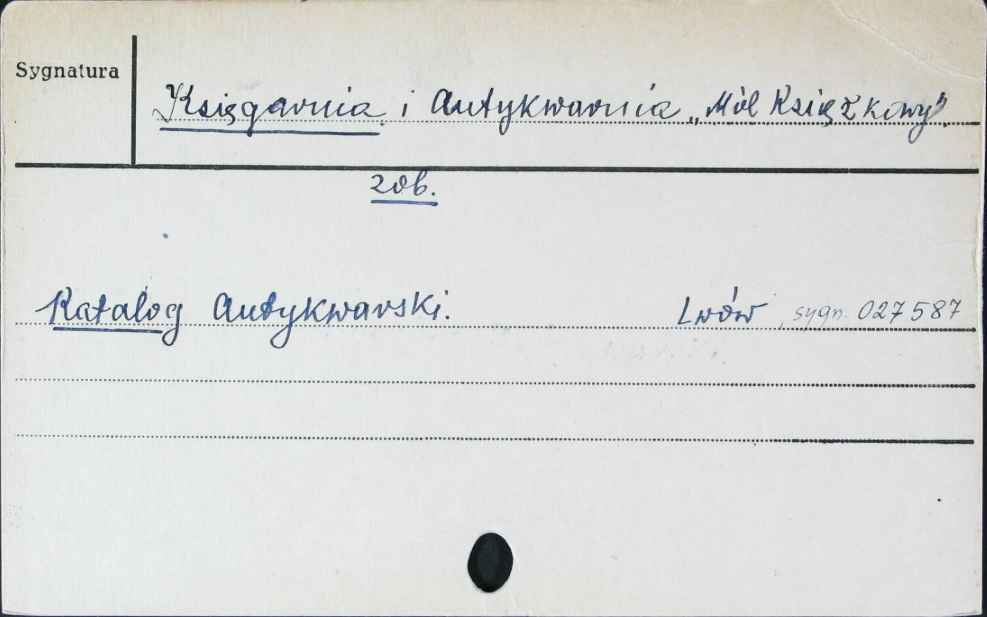 Sygnatura
Księgarnia i Antykwarnia „Mól Książkowy”.
zob.
Katalog Antykwarski. Lwów, sygn. 027587